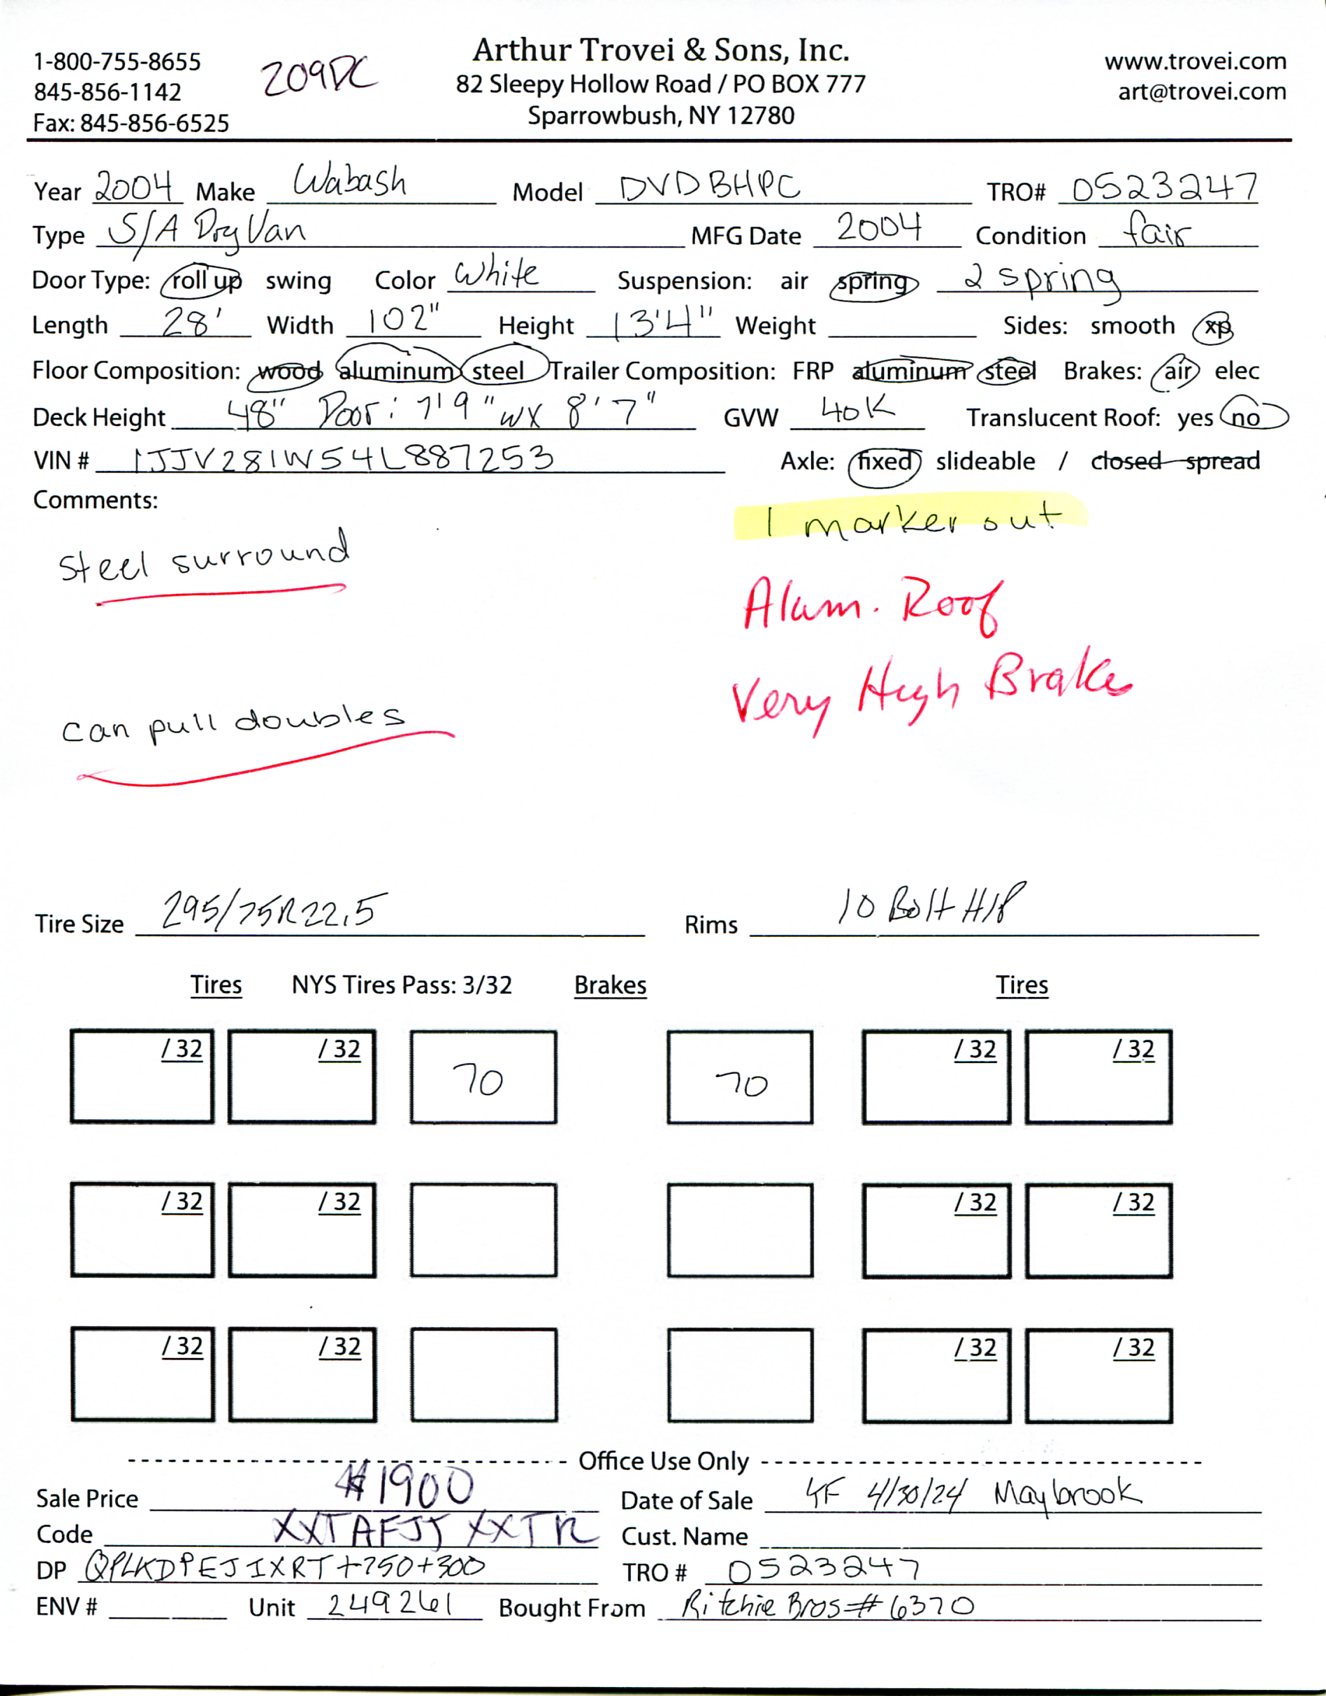 1-800-755-8655
845-856-1142
Fax: 845-856-6525
209DC
Arthur Trovei & Sons, Inc.
82 Sleepy Hollow Road / PO BOX 777
Sparrowbush, NY 12780
www.trovei.com
art@trovei.com
Year 2004 Make Wabash Model DVDBHPC TRO# 0523247
Type S/A Dry Van MFG Date 2004 Condition fair
Door Type: roll up swing Color White Suspension: air spring 2 spring
Length 28' Width 102" Height 13'4" Weight Sides: smooth xp
Floor Composition: wood aluminum steel Trailer Composition: FRP aluminum steel Brakes: air elec
Deck Height 48" Door: 7'9" wx 8'7" GVW 40K Translucent Roof: yes no
VIN # 1JJV281W54L887253 Axle: fixed slideable / closed spread
Comments:
1 marker out
steel surround
Alum. Roof
Very High Brakes
can pull doubles
Tire Size 295/75R22.5 Rims 10 Bolt H/P
Tires NYS Tires Pass: 3/32 Brakes Tires
/ 32 / 32 70 70 / 32 / 32
/ 32 / 32 / 32 / 32
/ 32 / 32 / 32 / 32
Office Use Only
Sale Price $1900 Date of Sale 4/30/24 Maybrook
Code XXTAFJJ XXTR Cust. Name
DP QPLKDPEJIXRT+750+300 TRO # 0523247
ENV # Unit 249261 Bought From Ritchie Bros # 6370